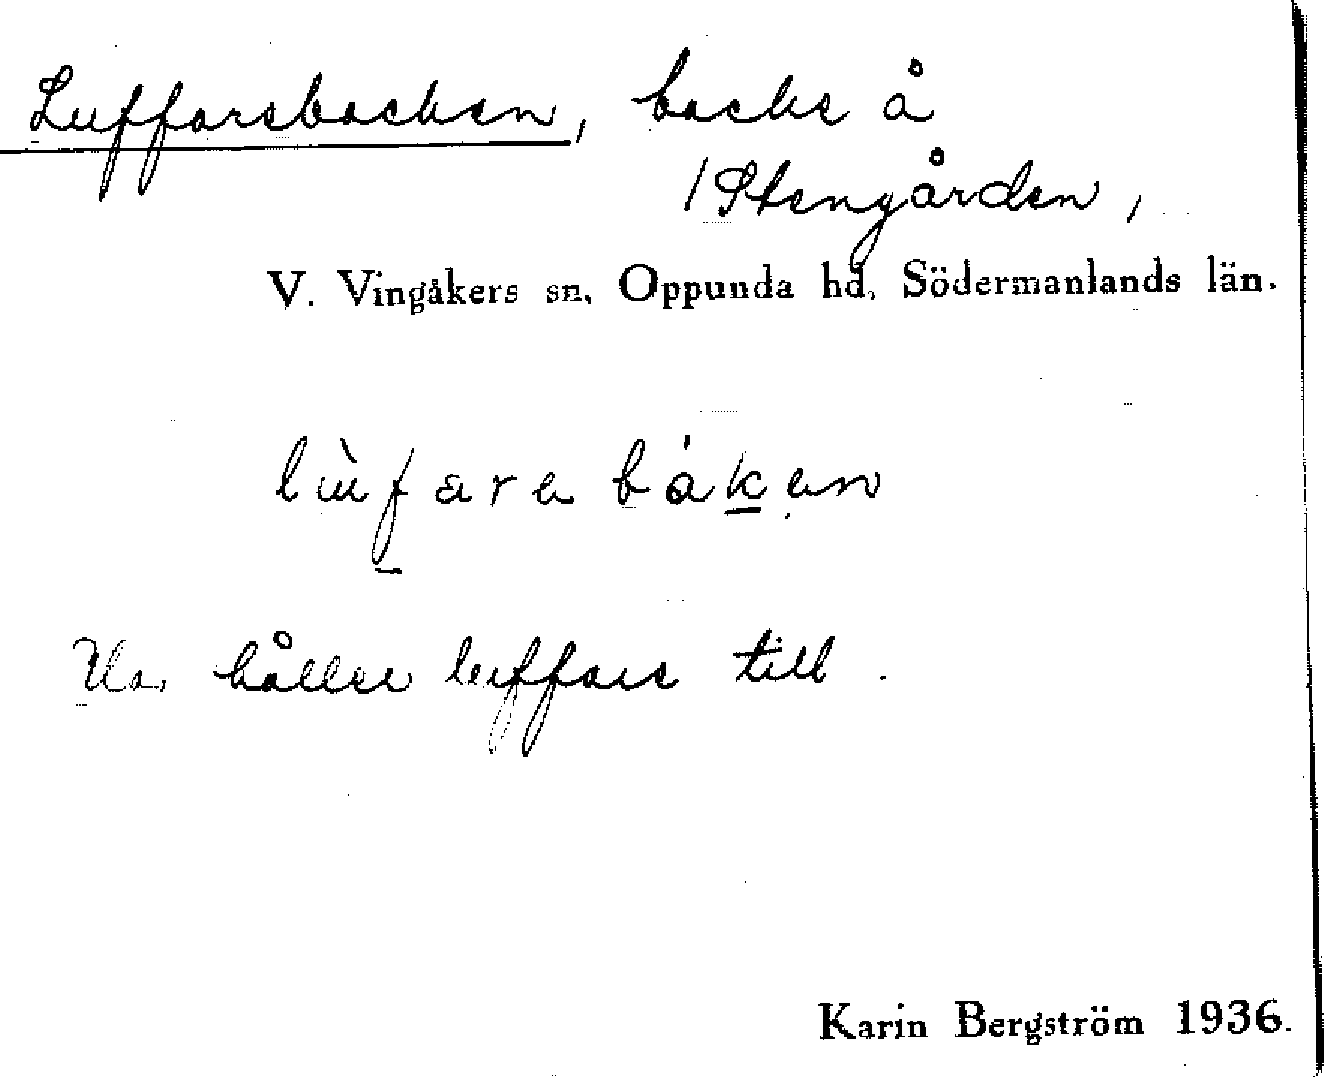 Luffarebacken, backe å
/ Stengården,
V. Vingåkers sn, Oppunda hd, Södermanlands län.
lùfara bákan
Där håller luffare till.
Karin Bergström 1936.